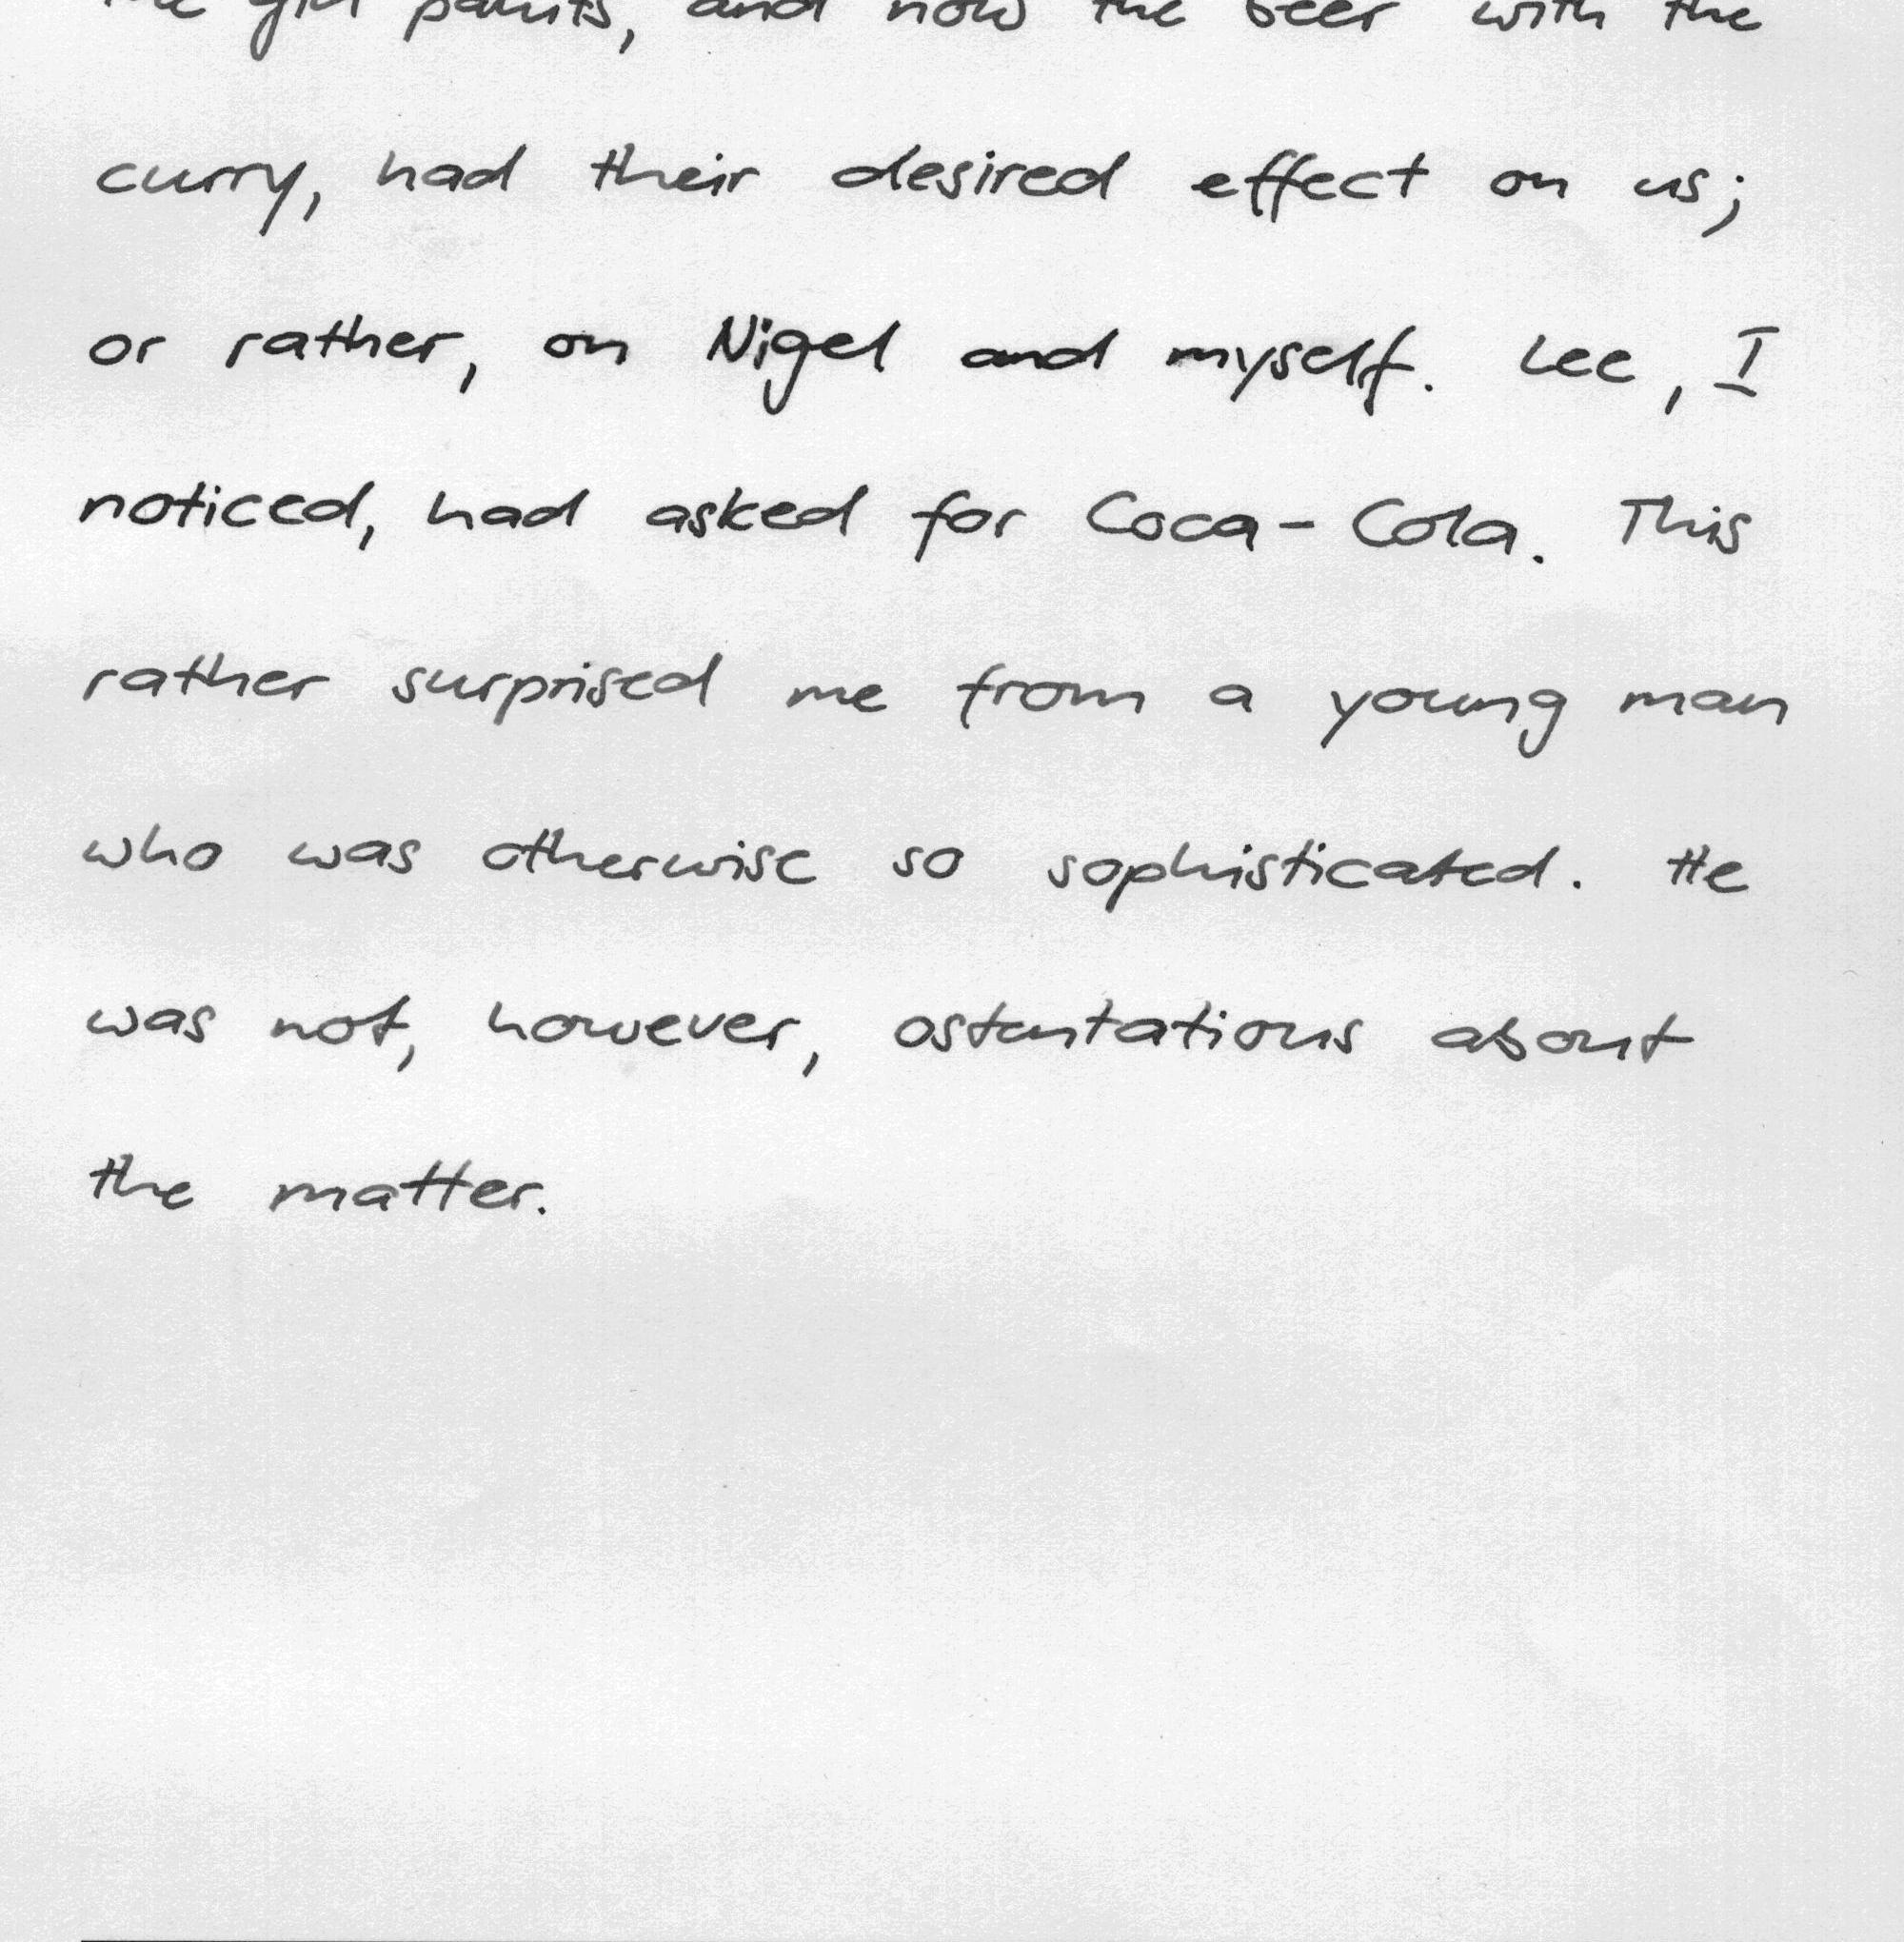 the gin pahits, and now the beer with the
curry, had their desired effect on us;
or rather, on Nigel and myself. Lee, I
noticed, had asked for Coca-Cola. This
rather surprised me from a young man
who was otherwise so sophisticated. He
was not, however, ostentatious about
the matter.